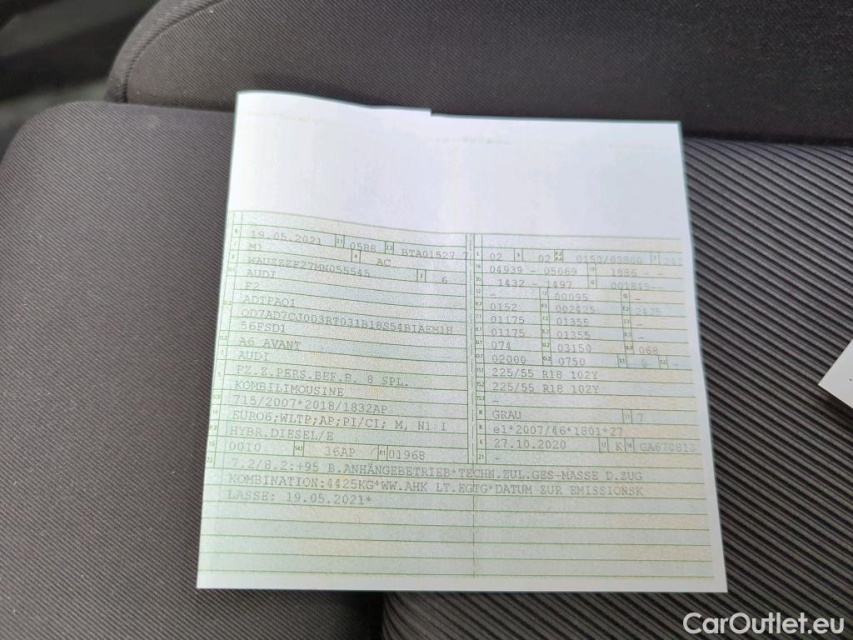 19.05.2021 0588 BTA01527 7
M1 AC
6
AUDI
F2
56FSD1
A6 AVANT
AUDI
FZ.Z.PERS.BEF.B. 8 SPL.
KOMBILIMOUSINE
715/2007*2018/1832AP
EURO6;WLTP;AP;PI/CI; M, N1 I
HYBR.DIESEL/E
36AP 01968
02 02
04939 - 05069 1886 - -
1432 - 1497
- 00095 -
0152 002425 2125
01175 01355 -
01175 01355 -
074 03150 068
02000 0750
225/55 R18 102Y
225/55 R18 102Y
-
GRAU 7
e1*2007/46*1801*27
27.10.2020 K
7.2/8.2:+95 B.ANHÄNGEBETRIEB*TECHN.ZUL.GES-MASSE D.ZUG
KOMBINATION:4425KG*WW.AHK LT.EGTG*DATUM ZUR EMISSIONSK
LASSE: 19.05.2021*
CarOutlet.eu